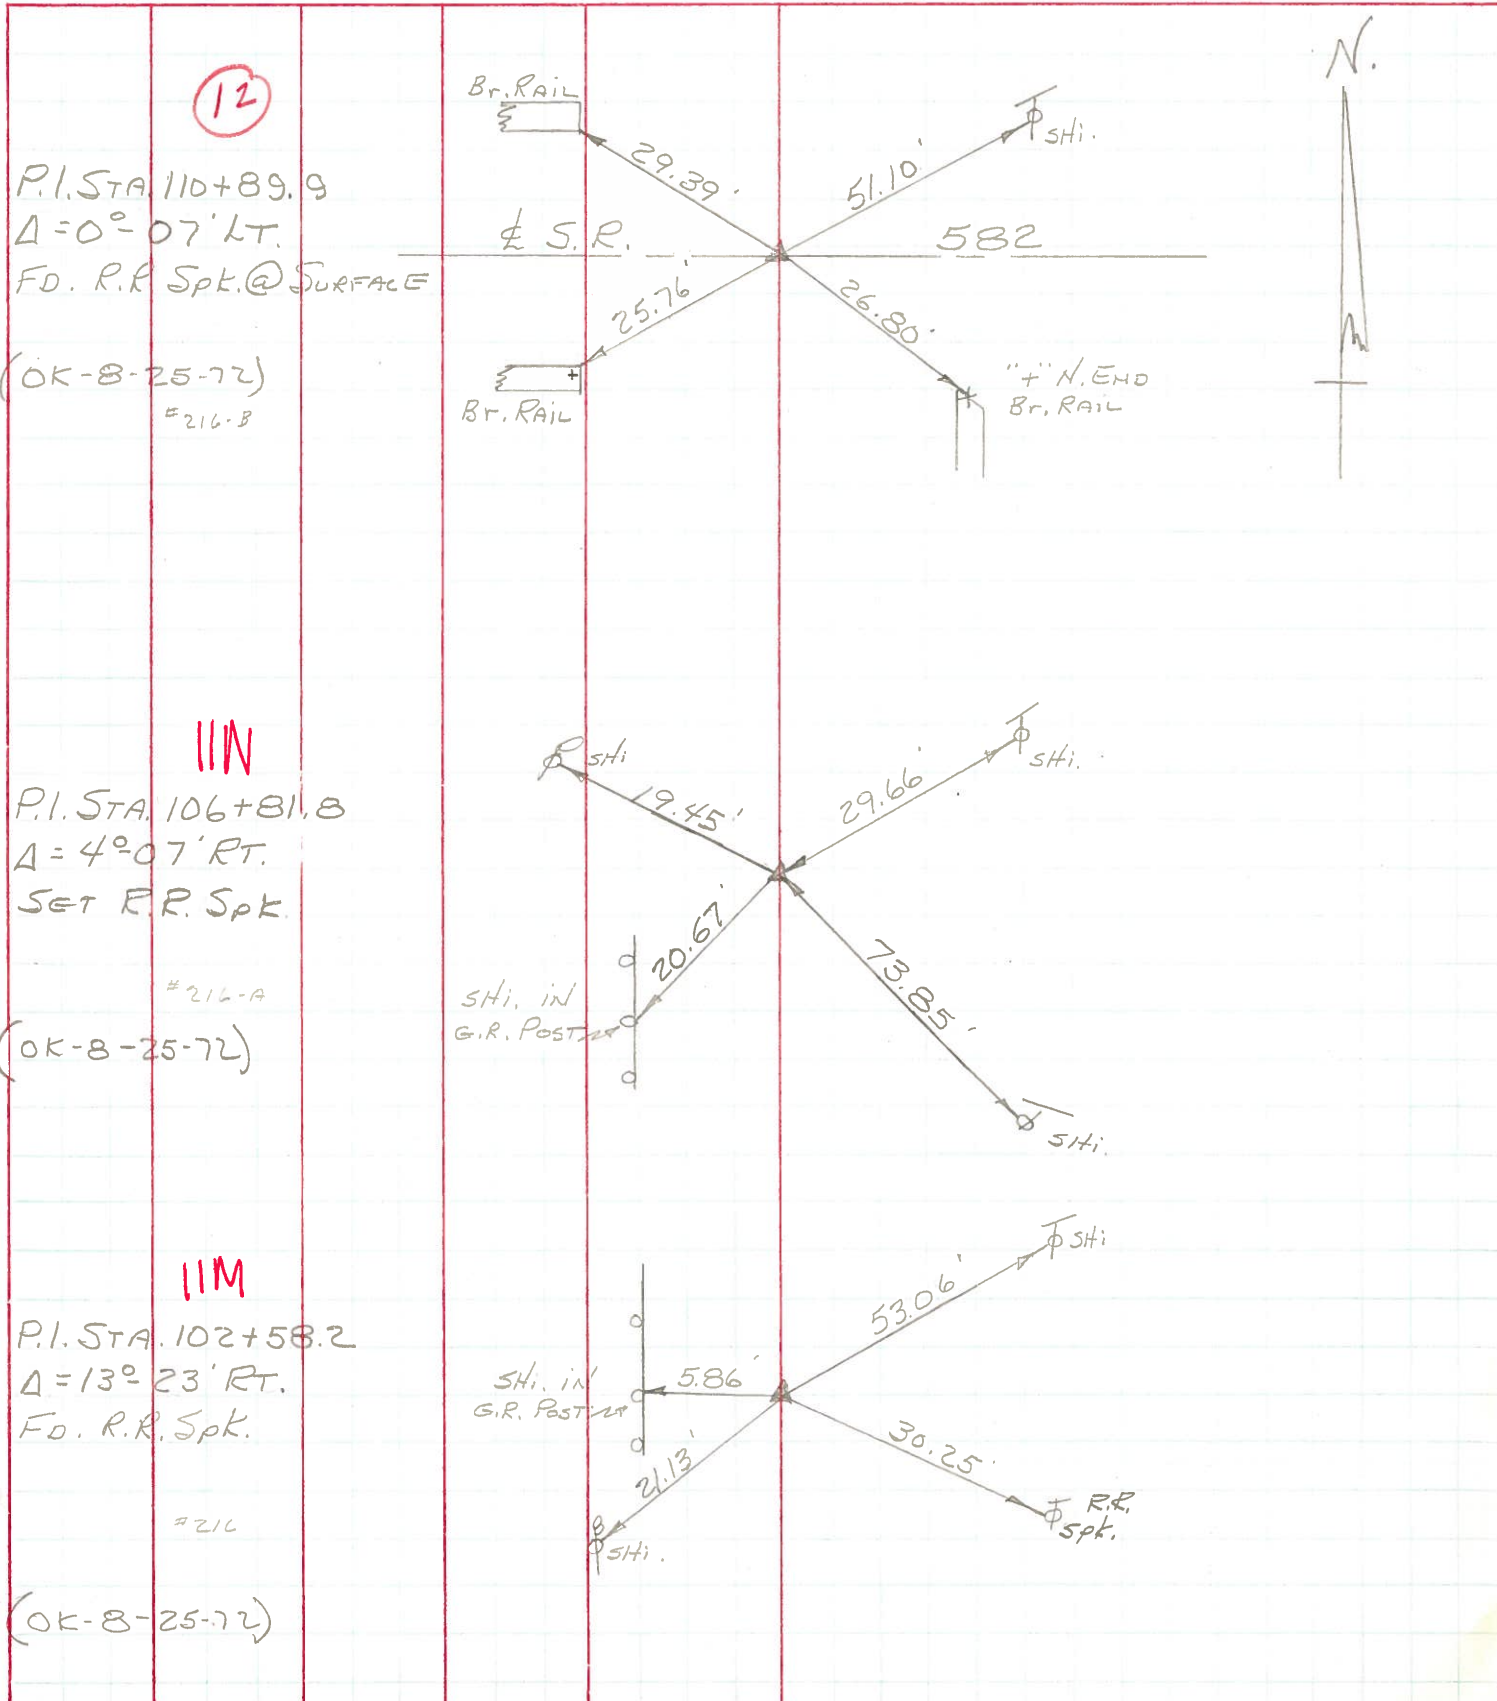 12
P.I. STA. 110+89.9
Δ = 0°-07' LT.
FD. R.R Spk. @ SURFACE
(OK-8-25-72)
#216-B
Br. RAIL
29.39'
51.10'
SHi.
N.
℄ S.R. 582
25.76'
26.80'
+
Br. RAIL
"+" N. END
Br. RAIL
11N
P.I. STA. 106+81.8
Δ = 4°-07' RT.
SET R.R. Spk.
#216-A
(OK-8-25-72)
SHi
19.45'
29.66'
SHi.
20.67'
73.85'
SHi. iN
G.R. POST
SHi.
11M
P.I. STA. 102+58.2
Δ = 13°-23' RT.
FD. R.R. Spk.
#216
(OK-8-25-72)
SHi
53.06'
SHi. iN
G.R. POST
5.86'
30.25'
21.13'
R.R.
Spk.
SHi.